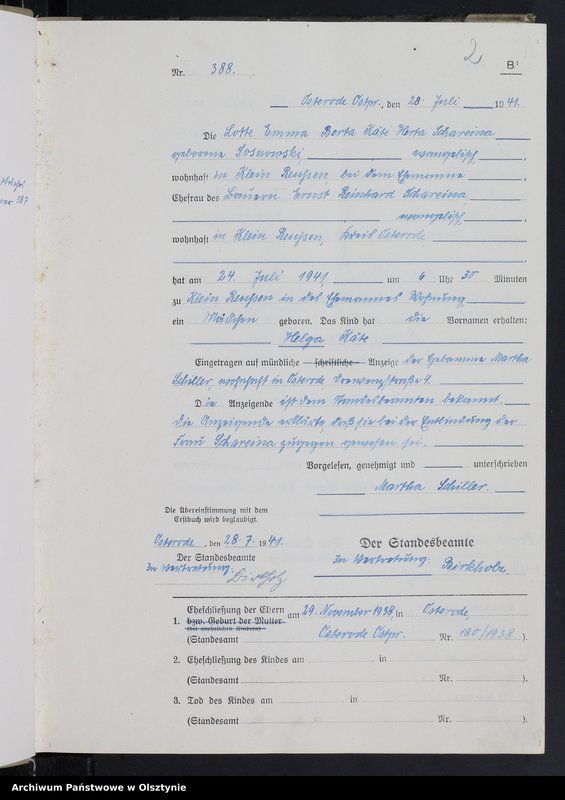 2
B¹
Nr. 388.
Osterode Ostpr., den 28. Juli 1941.
Die Lotte Emma Berta Käte Herta Schareina
geborene Sosnowski, evangelisch,
wohnhaft in Klein Reußen bei dem Ehemanne
Ehefrau des Bauern Ernst Reinhard Schareina,
evangelisch,
wohnhaft in Klein Reußen, Kreis Osterode,
hat am 24. Juli 1941, um 6 Uhr 30 Minuten
zu Klein Reußen in des Ehemannes Wohnung,
ein Mädchen geboren. Das Kind hat die Vornamen erhalten:
Helga Käte
Eingetragen auf mündliche – schriftliche – Anzeige der Hebamme Martha
Schiller, wohnhaft in Osterode Drewenzstraße 1.
Die Anzeigende ist dem Standesbeamten bekannt.
Die Anzeigende erklärte, daß sie bei der Entbindung der
Frau Schareina zugegen gewesen sei.
Vorgelesen, genehmigt und unterschrieben
Martha Schiller.
Die Übereinstimmung mit dem
Erstbuch wird beglaubigt.
Osterode, den 28. 7. 1941.
Der Standesbeamte
In Vertretung: Birkholz
Der Standesbeamte
In Vertretung: Birkholz.
1. Eheschließung der Eltern am 29. November 1938, in Osterode,
bzw. Geburt der Mutter
(bei unehelichen Kindern)
(Standesamt Osterode Ostpr. Nr. 180/1938 ).
2. Eheschließung des Kindes am in
(Standesamt Nr. ).
3. Tod des Kindes am in
(Standesamt Nr. ).
Archiwum Państwowe w Olsztynie